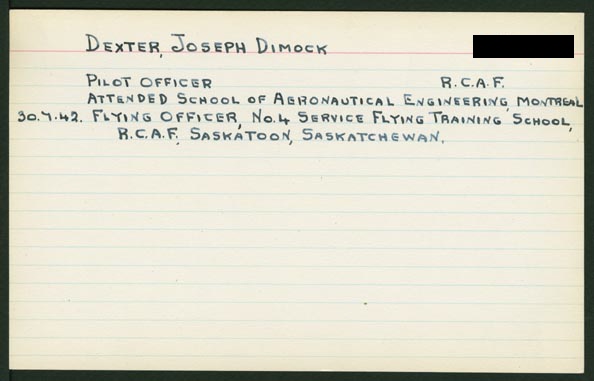 DEXTER, JOSEPH DIMOCK
PILOT OFFICER R.C.A.F.
ATTENDED SCHOOL OF AERONAUTICAL ENGINEERING, MONTREAL
30.7.42. FLYING OFFICER, NO.4 SERVICE FLYING TRAINING SCHOOL,
R.C.A.F. SASKATOON, SASKATCHEWAN.